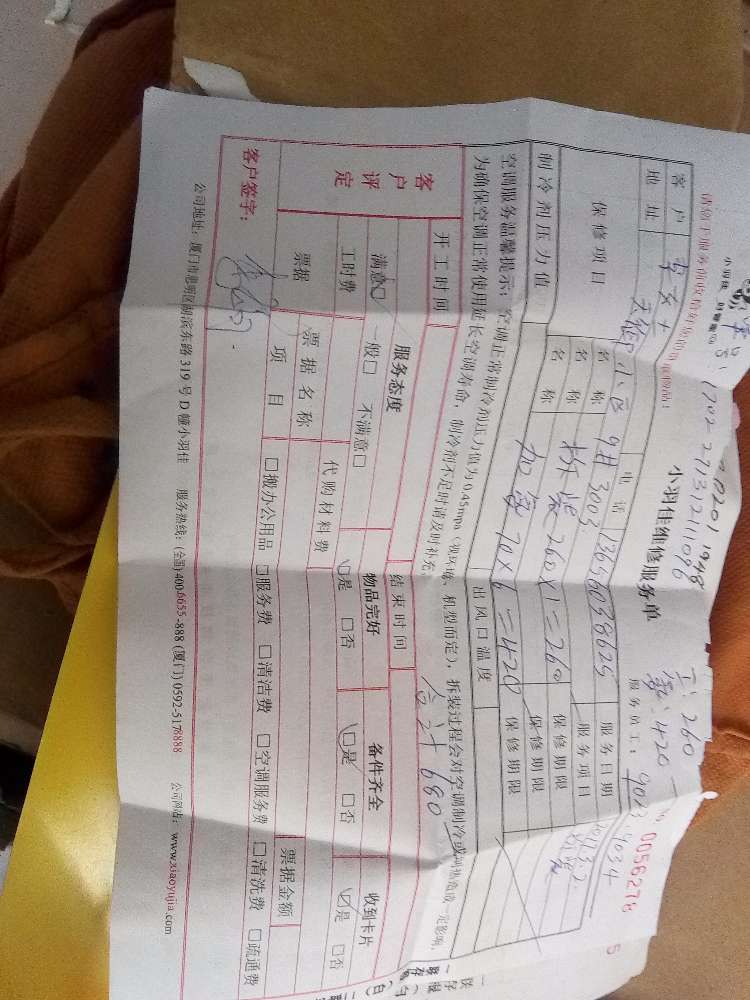 请
小羽佳维修服务单
0056278
1702271312111016
工: 260
氨: 420
服务员工: 9013 9034
客户 电话 13656038625 服务日期
地址 天御小区9#3003 服务项目 拆装
保修项目 名称 拆装 260×1=260 保修期限
名称 加氨 70×6=420 保修期限
制冷剂压力值 出风口温度 保修期限
空调服务温馨提示: 空调正常制冷剂压力值为0.45mpa (视环境、机型而定), 拆装过程会对空调制冷或制热造成一定影响,
为确保空调正常使用延长空调寿命, 制冷剂不足时请及时补充。
合计 680
开工时间 结束时间
客户评定 服务态度 物品完好 备件齐全 收到卡片
满意☑ 一般□ 不满意□ ☑是 □否 ☑是 □否 ☑是 □否
工时费 代购材料费
票据 票据名称 票据金额
项目 □搬办公用品 □服务费 □清洁费 □空调服务费 □清洗费 □疏通费
客户签字:
公司地址: 厦门市思明区湖滨东路319号D幢小羽佳 服务热线: (全国)400-6655-888 (厦门)0592-5178888 公司网站: www.xiaoyujia.com